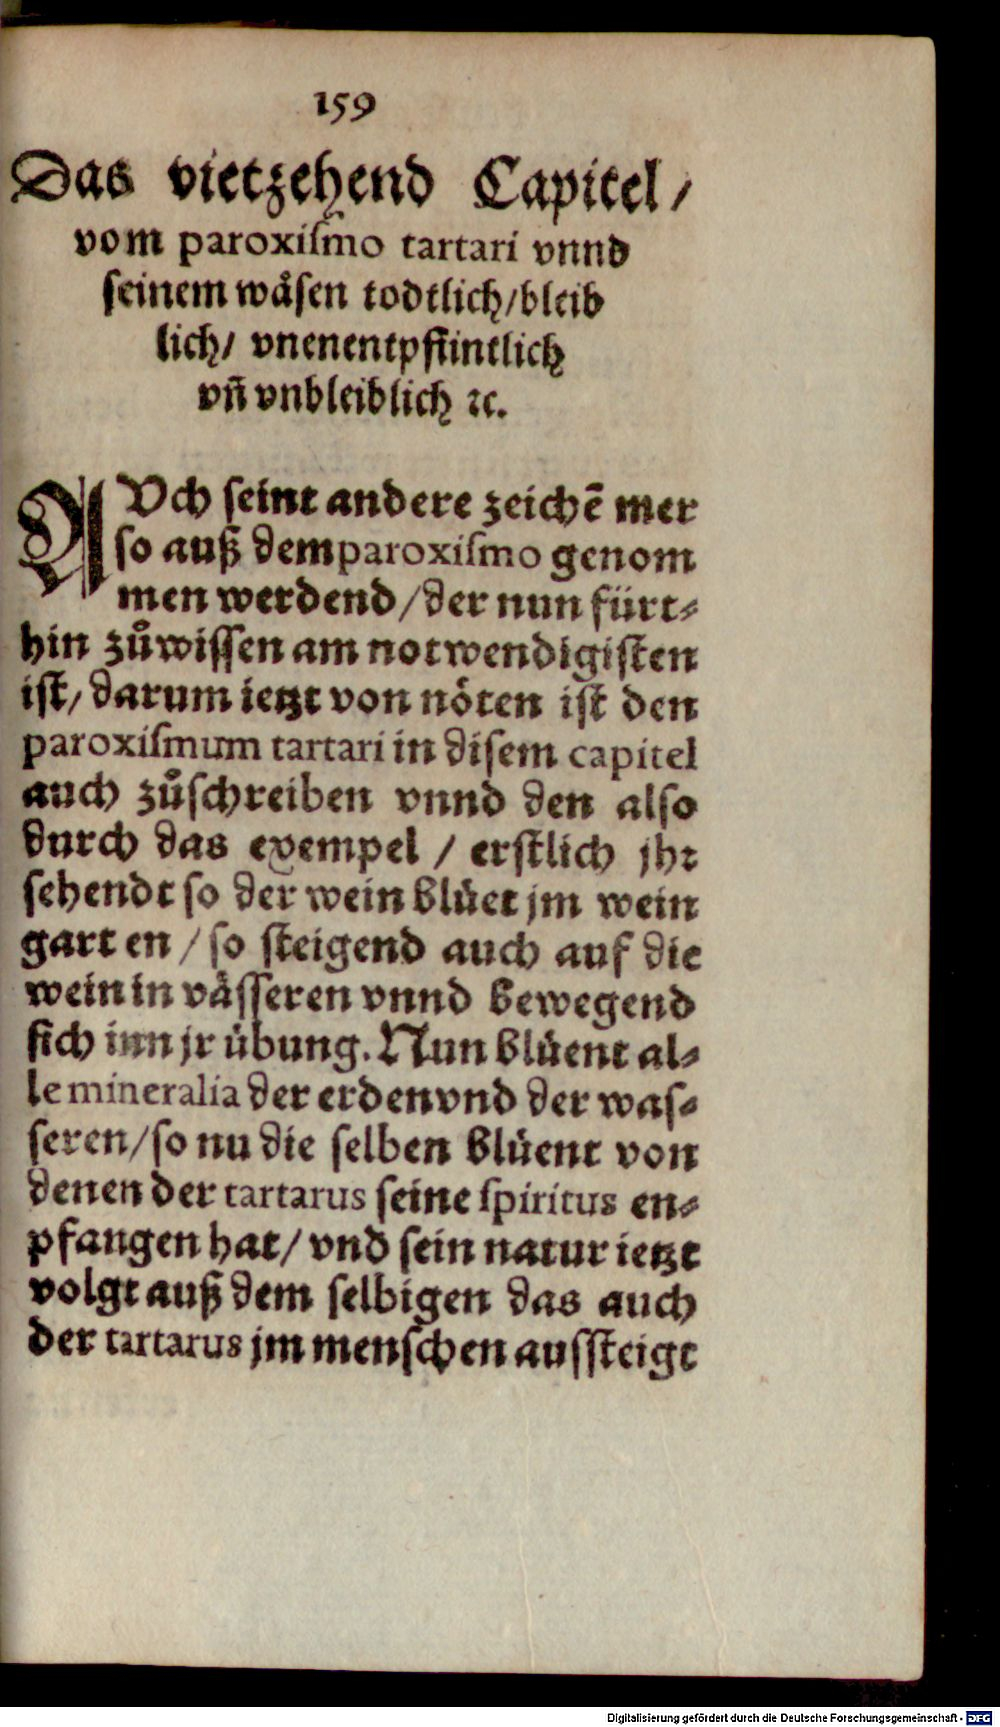 159
Das vietzehend Capitel /
vom paroxiſmo tartari vnnd
ſeinem wåſen todtlich/bleib
lich/ vnenentpfintlich
vn̄ vnbleiblich ꝛc.
AVch ſeint andere zeichē mer
ſo auß dem paroxiſmo genom
men werdend/der nun fürt⸗
hin zůwiſſen am notwendigiſten
iſt/ darum ietzt von nöten iſt den
paroxiſmum tartari in diſem capitel
auch zůſchreiben vnnd den alſo
durch das exempel / erſtlich jhr
ſehendt ſo der wein blüet jm wein
gart en / ſo ſteigend auch auf die
wein in våſſeren vnnd bewegend
ſich inn jr übung. Nun blüent al⸗
le mineralia der erden vnd der waſ⸗
ſeren/ſo nu die ſelben blüent von
denen der tartarus ſeine ſpiritus en⸗
pfangen hat/ vnd ſein natur ietzt
volgt auß dem ſelbigen das auch
der tartarus jm menſchen auſſteigt
Digitalisierung gefördert durch die Deutsche Forschungsgemeinschaft - DFG